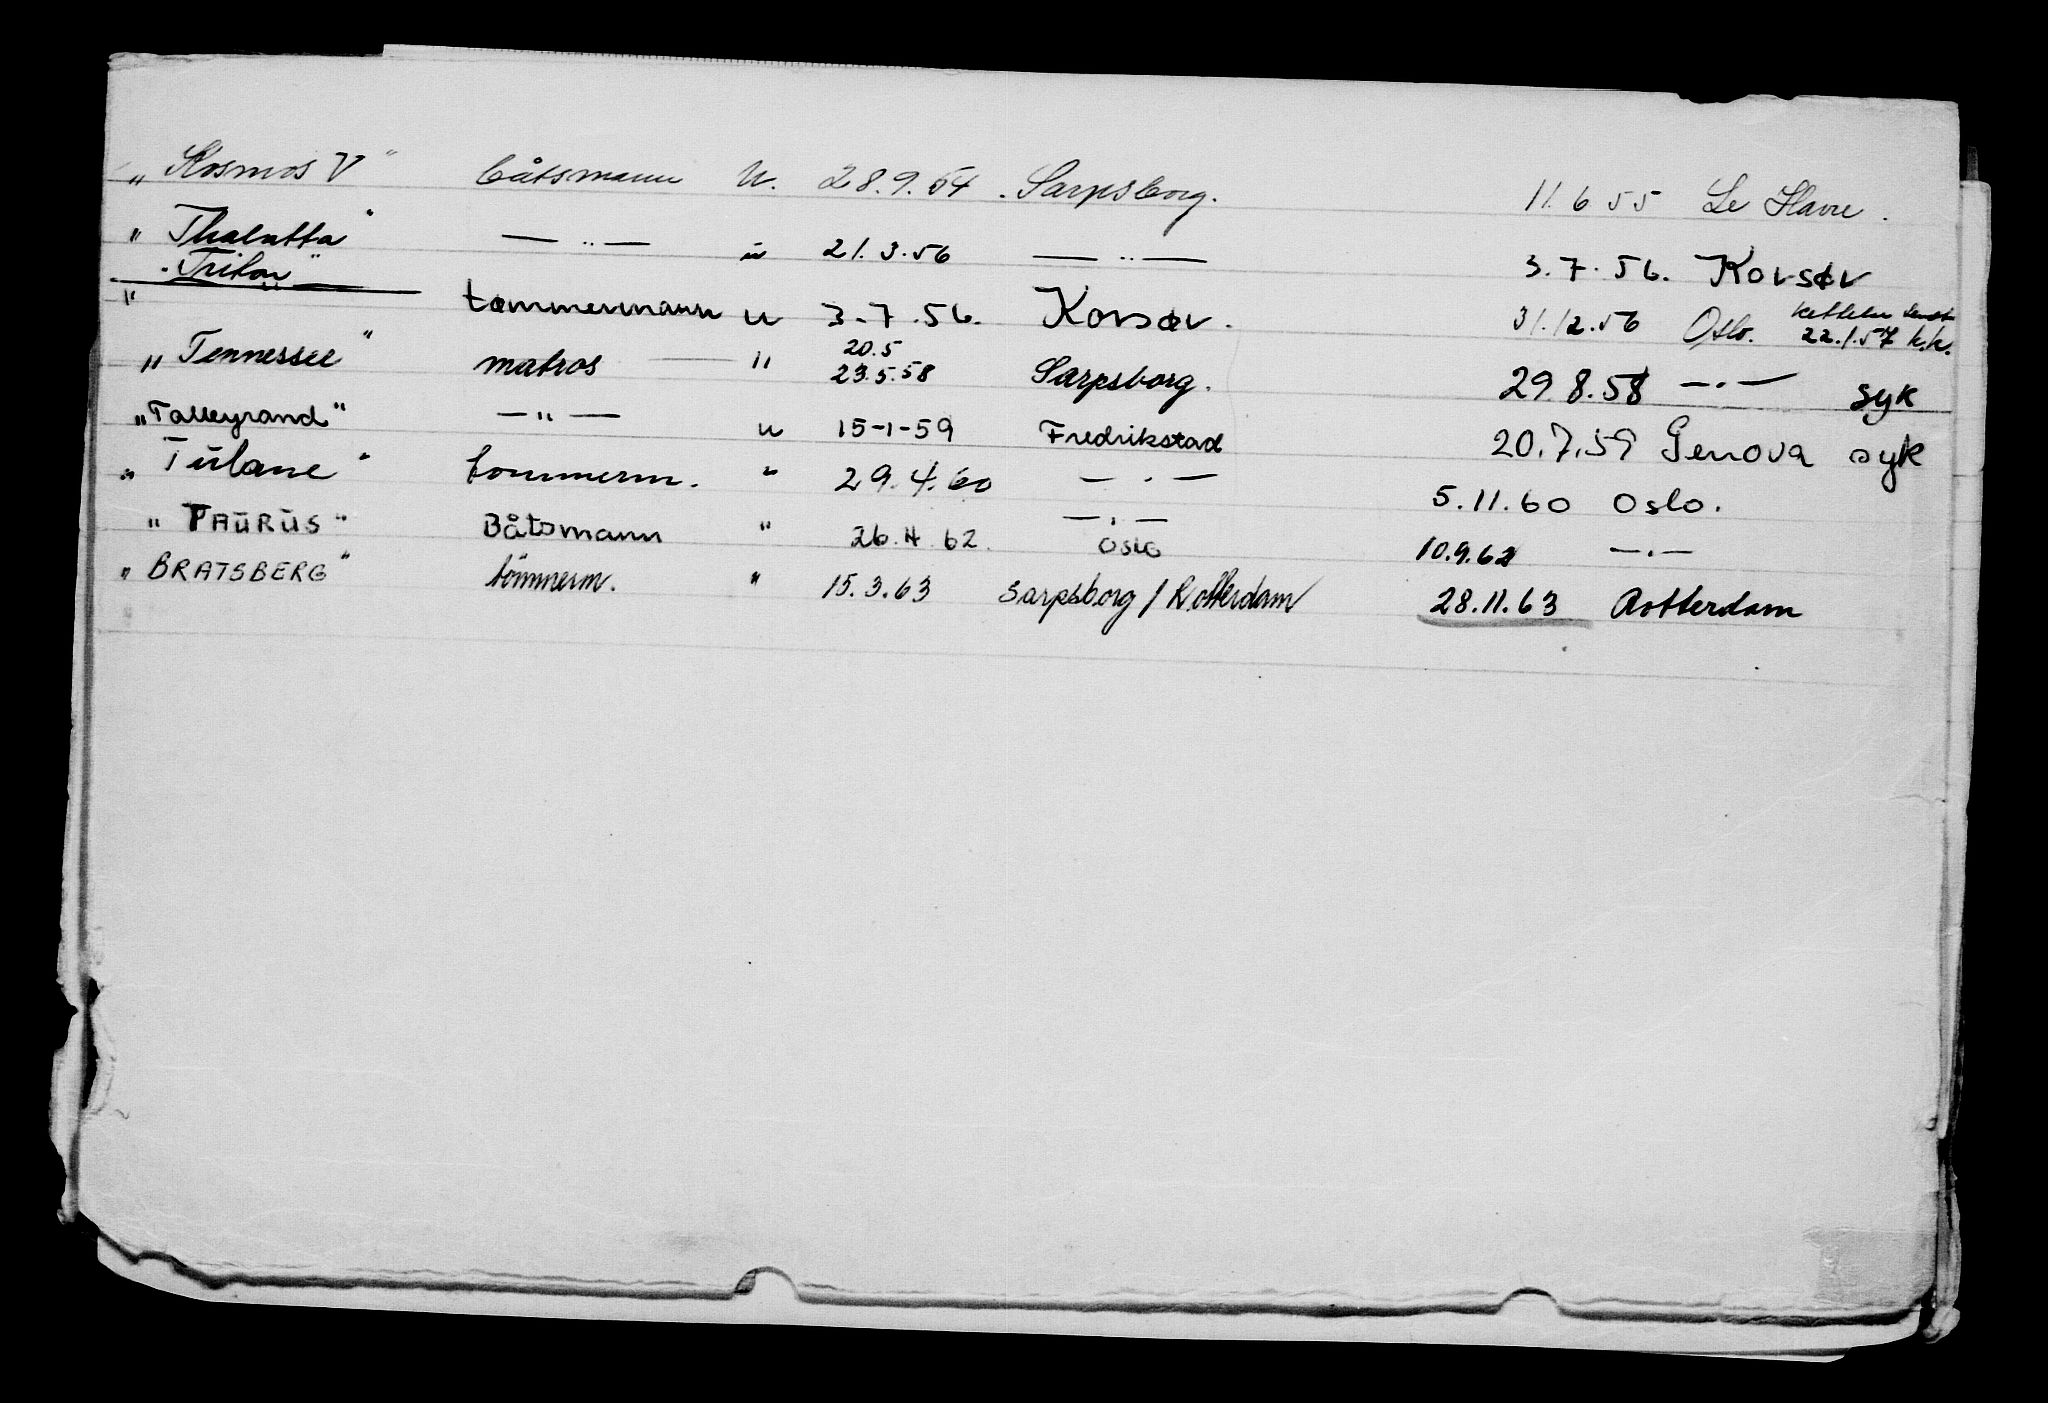 „ Kosmos V " båtsmann U. 28.9.54 . Sarpsborg. 11.6 55 Le Havre .
" Thalatta " — " — " 21.3.56 — " — 3.7.56. Korsør
"Triton"
" tømmermann u 3-7.56. Korsør. 31.12.56 Oslo. 22.1.57 k.k.
„ Tennessee " matros — " 20.5 23.5.58 Sarpsborg. 29.8.58 — " — syk
„Talleyrand" — " — u 15-1-59 Fredrikstad 20.7.59 Genova syk
„ Tulane " tømmerm. " 29.4.60 — " — 5.11.60 Oslo.
" TAURUS " Båtsmann " 26.4.62. — " — Oslo 10.9.62 — " —
„ BRATSBERG " tömmerm. " 15.3.63 Sarpsborg / Rotterdam 28.11.63 Rotterdam